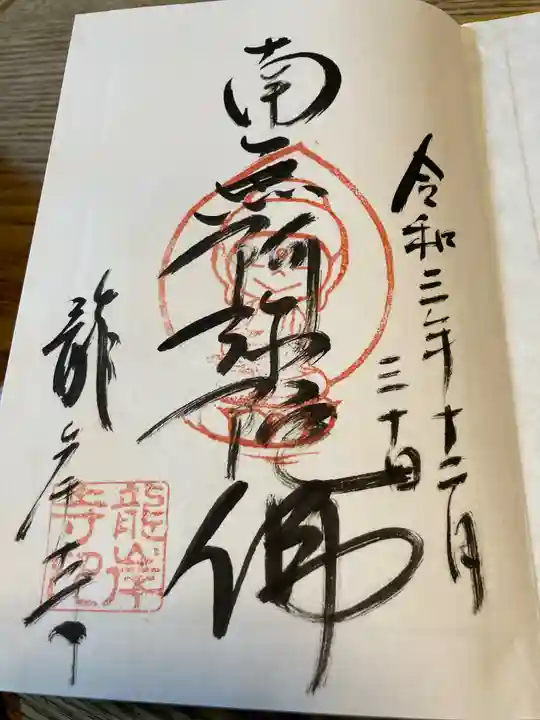 令和三年十二月
三十日
南無阿弥陀佛
龍岸寺
龍岸
寺印